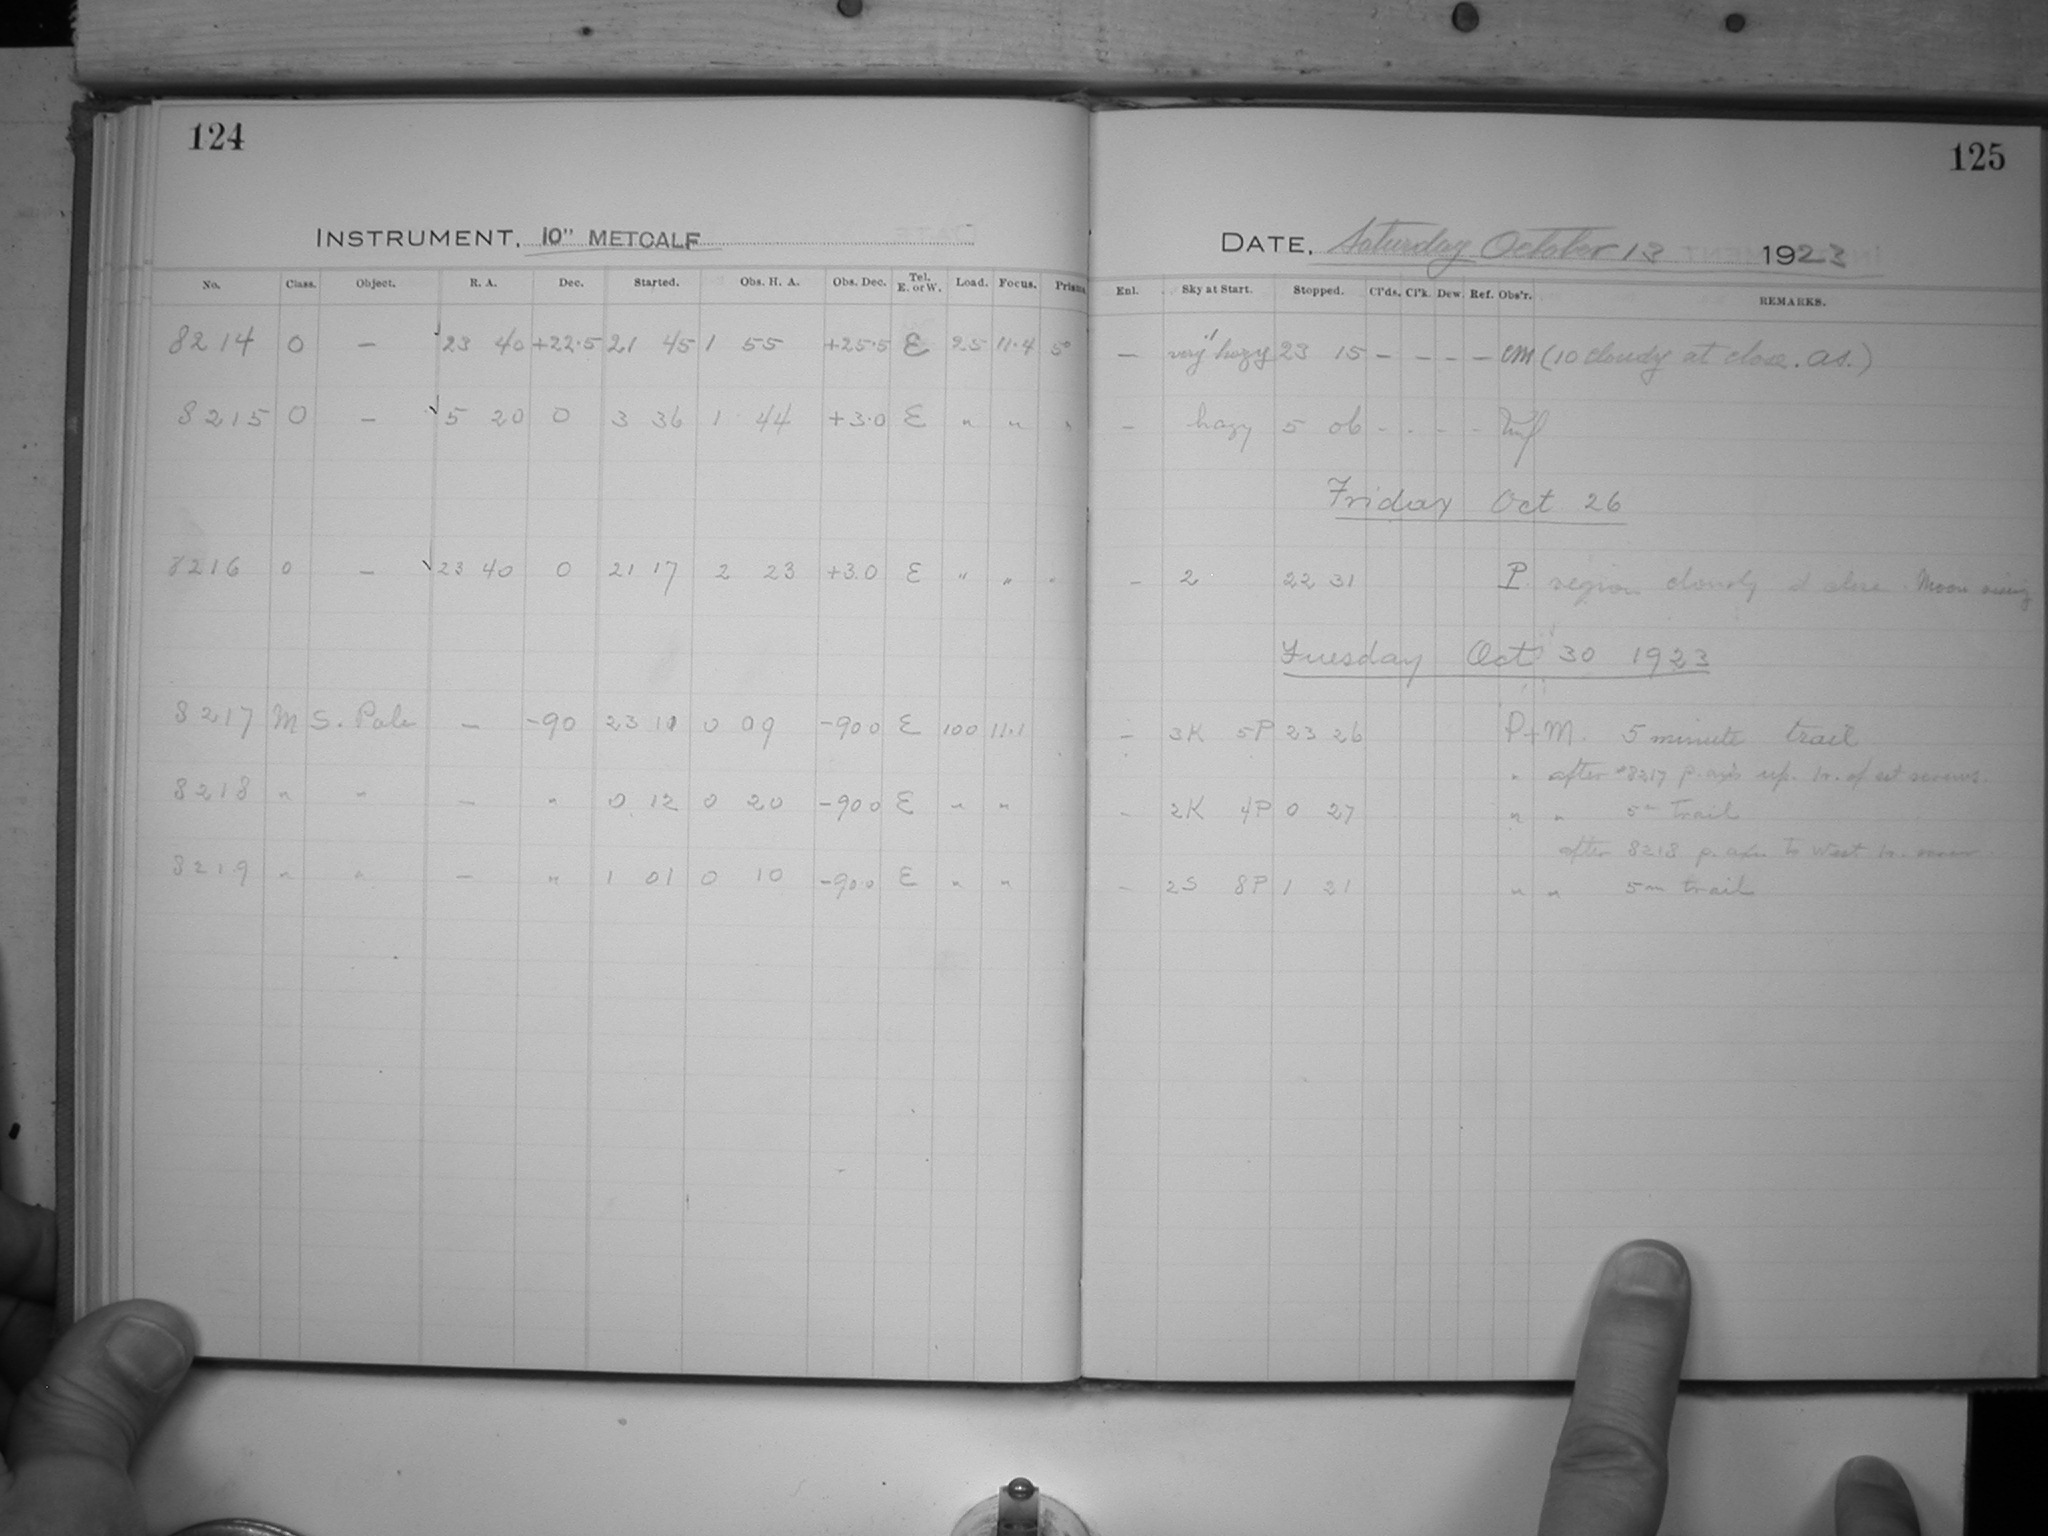 124
125
INSTRUMENT, 10" METCALF
DATE, Saturday October 13 1923
No. Class. Object. R. A. Dec. Started. Obs. H. A. Obs. Dec. Tel. E. or W. Load. Focus. Prisms
Enl. Sky at Start. Stopped. Cl'ds. Cl'k. Dew. Ref. Obs'r. REMARKS.
8214 0 — 23 40 +22.5 21 45 1 55 +25.5 E 25 11.4 5° — very hazy 23 15 — - - — CM (10 cloudy at close. AS.)
8215 0 — 5 20 0 3 36 1 44 +3.0 E " " " — hazy 5 06 - - - -
Friday Oct 26
8216 0 — 23 40 0 21 17 2 23 +3.0 E " " " — 2 22 31 P. region cloudy at close. Moon rising
Tuesday Oct 30 1923
8217 M S. Pole — -90 23 11 0 09 -90 0 E 100 11.1 — 3K 5P 23 26 P+M. 5 minute trail
" after #8217 p. axis up. of set screws.
8218 " " — " 0 12 0 20 -90 0 E " " - 2K 4P 0 27 " " 5m trail
after 8218 p. axis to west
8219 " " — " 1 01 0 10 -90.0 E " " - 2S 8P 1 21 " " 5m trail